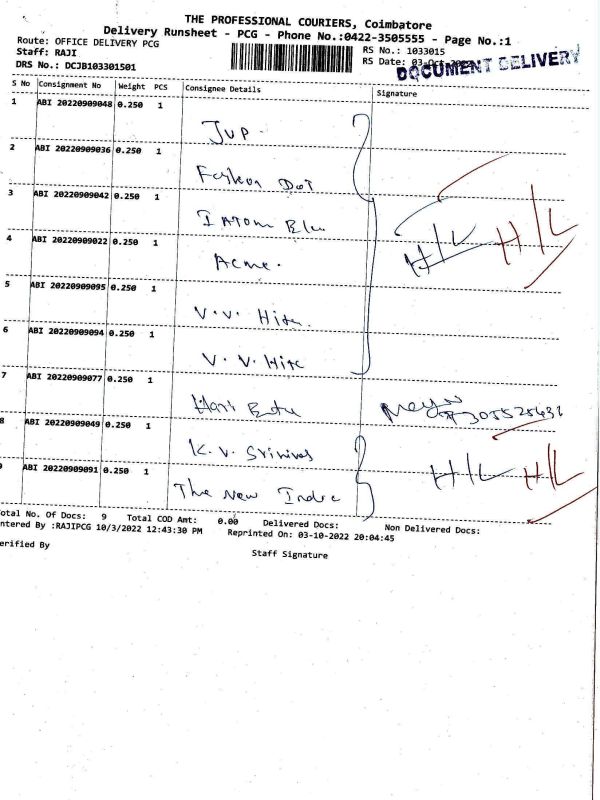 THE PROFESSIONAL COURIERS, Coimbatore
Delivery Runsheet - PCG - Phone No.:0422-3505555 - Page No.:1
Route: OFFICE DELIVERY PCG RS No.: 1033015
Staff: RAJI RS Date: 03-Oct-2022
DRS No.: DCJB103301501 DOCUMENT DELIVERY
S No Consignment No Weight PCS Consignee Details Signature
1 ABI 20220909048 0.250 1 Jup.
2 ABI 20220909036 0.250 1 Dot
3 ABI 20220909042 0.250 1
4 ABI 20220909022 0.250 1 Acme.
H/L H/L
5 ABI 20220909095 0.250 1 V.V.
6 ABI 20220909094 0.250 1 V.V.
7 ABI 20220909077 0.250 1 Hari
8 ABI 20220909049 0.250 1 K.V. Srinivas
H/L H/L
9 ABI 20220909091 0.250 1 The New India
Total No. Of Docs: 9 Total COD Amt: 0.00 Delivered Docs: Non Delivered Docs:
Entered By :RAJIPCG 10/3/2022 12:43:30 PM Reprinted On: 03-10-2022 20:04:45
Verified By Staff Signature